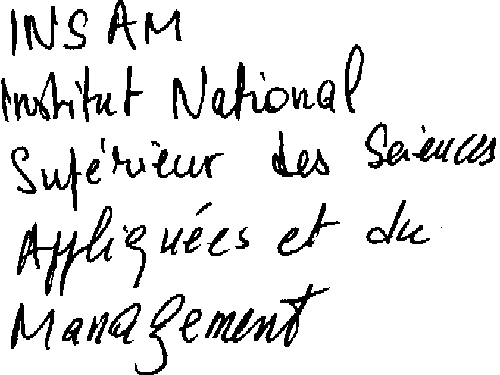 INSAM
Institut National
Supérieur des Sciences
Appliquées et du
Management